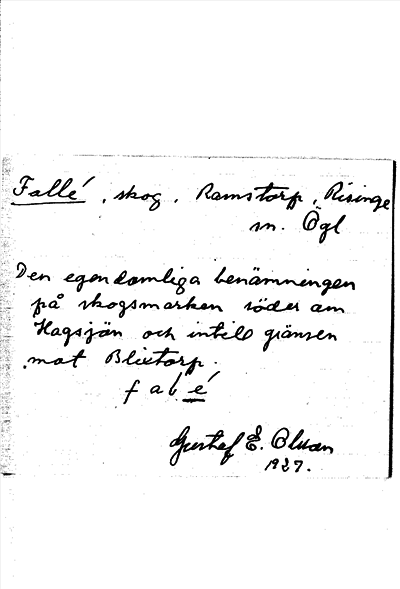 Fallé, skog, Ramstorp, Risinge
sn. Ögl
Den egendomliga benämningen
på skogsmarken söder om
Hagsjön och intill gränsen
mot Blixtorp.
f a l é
Gustaf E. Olsson
1927.